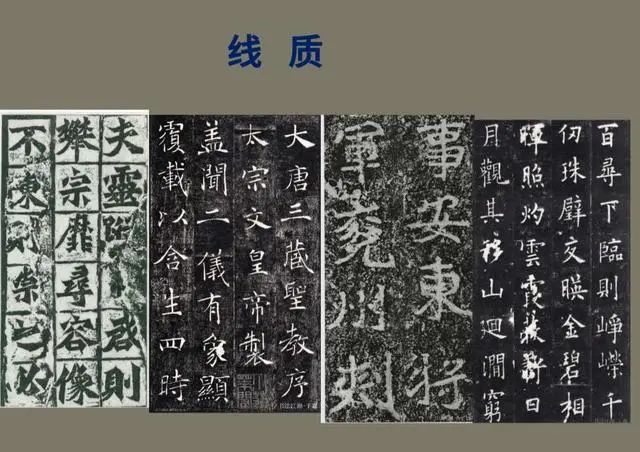 线质
夫靈則
攀宗靡尋容像
不陳則崇之必
大唐三藏聖教序
太宗文皇帝製
盖聞二儀有象顯
覆載以含生四時
事安東将
軍兗州刺
百尋下臨則崢嶸千
仞珠壁交暎金碧相
暉照灼雲霞蔽虧日
月觀其移山迴澗窮